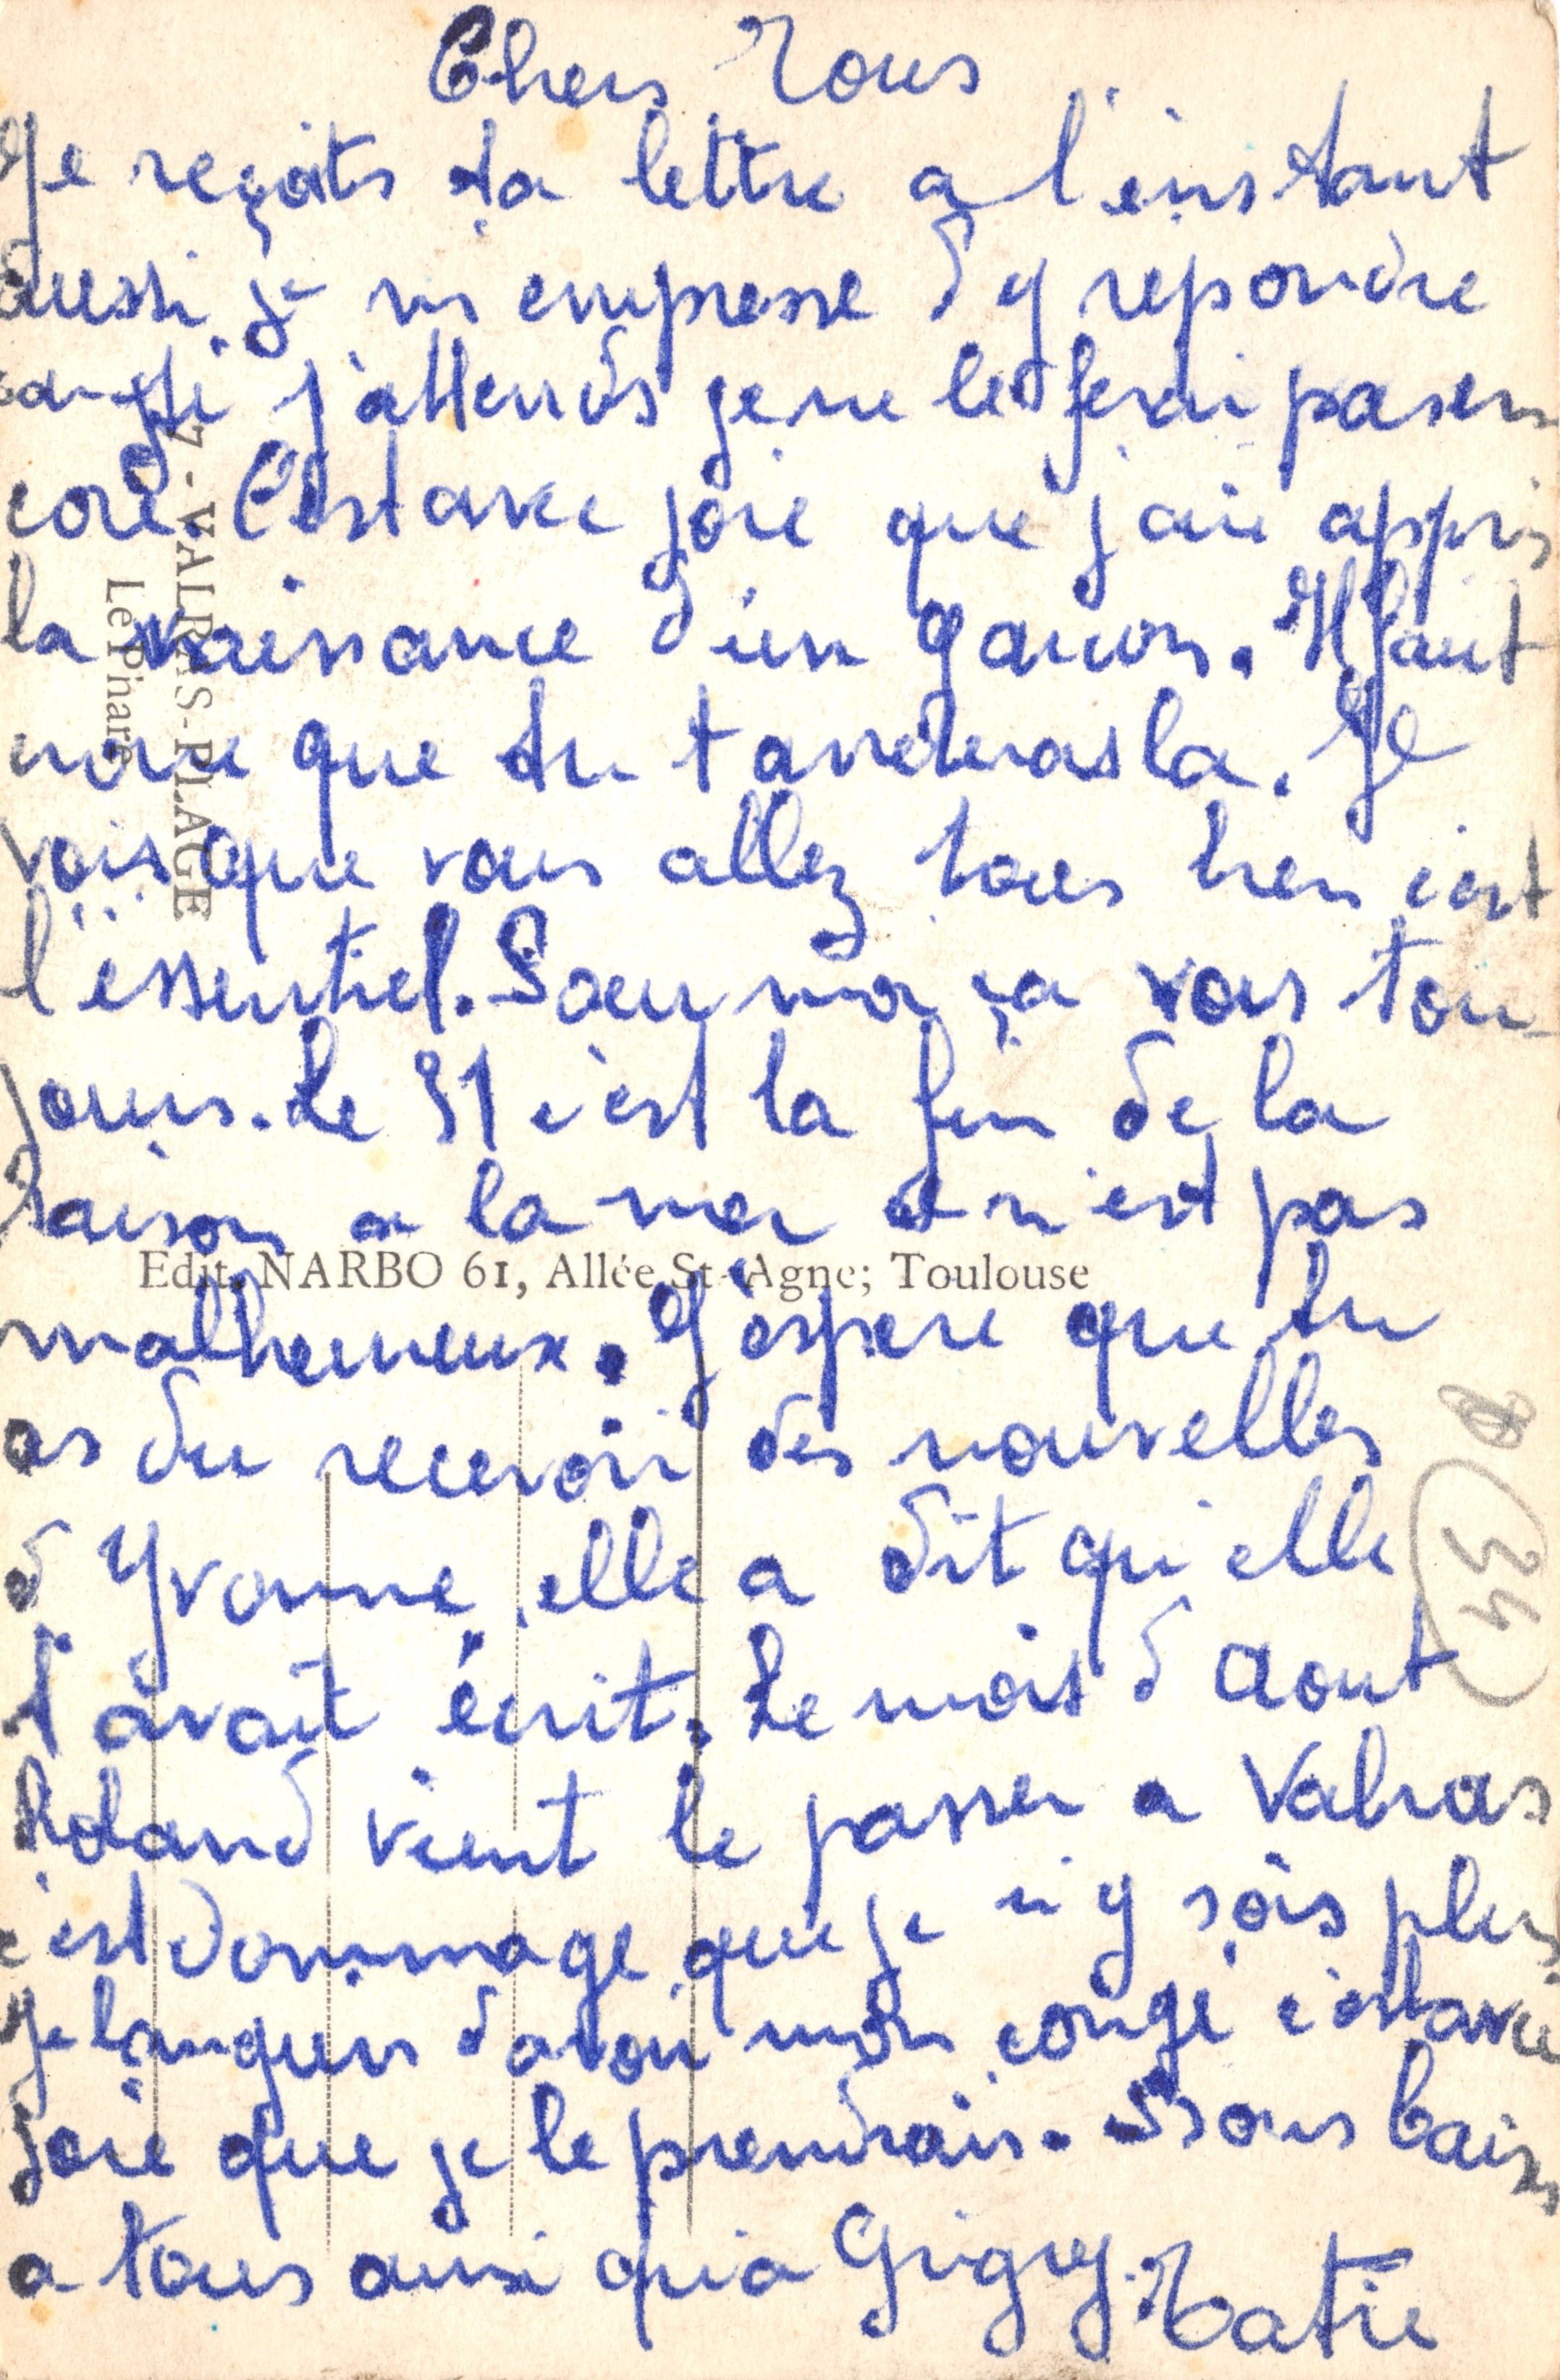 Chers Tous
Je reçoits ta lettre a l'instant
aussi je m empresse d'y repondre
car si j'attends je ne le ferai pas en
core. C'est avec joie que j'ai appris
la naissance d'un garcon. Il faut
croire que tu t arrêteras la. Je
vois que vous allez tous bien c'est
l'essentiel. Pour moi ça vas tou-
jours. Le 31 c'est la fin de la
saison a la mer ce n'est pas
malheureux. J'espere que tu
as du recevoir des nouvelles
d'Yvonne, elle a dit qu'elle
t'avait écrit. Le mois d'Aout
Roland vient le passer a Valras
c'est dommage que je n'y sois plus
Je languis d'avoir mon congé c'est avec
joie que je le prendrais. Bons baisers
a tous ainsi qu'a Gigny. Tatie
7 - VALRAS-PLAGE
Le Phare
Edit. NARBO 61, Allée St-Agne; Toulouse
34